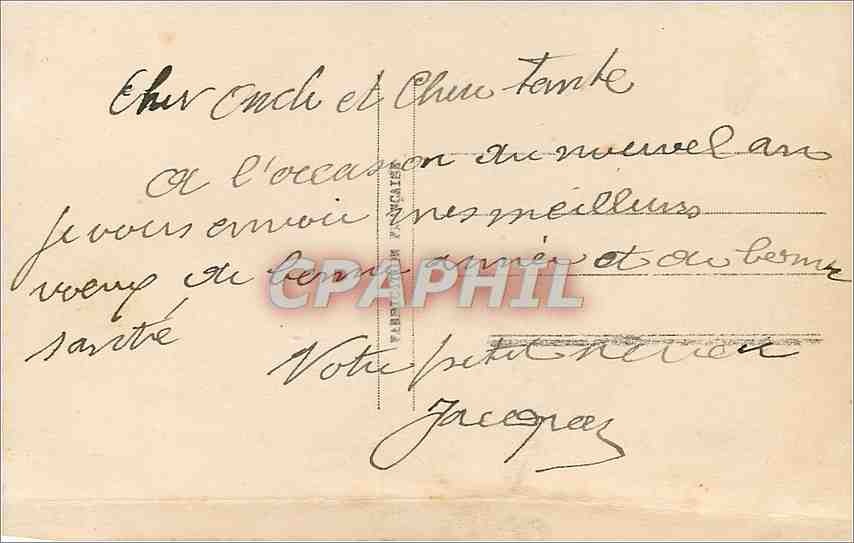 Cher Oncle et Chère Tante
A l'occasion du nouvel an
je vous envoie mes meilleurs
voeux de bonne année et de bonne
santé
Votre petit neveu
Jacques
FABRICATION FRANÇAISE
CPAPHIL